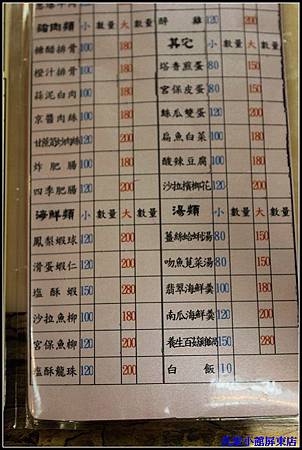 豬肉類 小 數量 大 數量
糖醋排骨 100 180
橙汁排骨 100 180
蒜泥白肉 100 180
京醬肉絲 100 180
120 200
炸肥腸 100 180
四季肥腸 120 200
海鮮類 小 數量 大 數量
鳳梨蝦球 120 200
滑蛋蝦仁 120 200
塩酥蝦 150 250
沙拉魚柳 100 180
宮保魚柳 120 200
塩酥龍珠 120 200
醉雞 120 200
其它 小 數量 大 數量
塔香煎蛋 80 150
宮保皮蛋 80 150
絲瓜雙蛋 120 200
扁魚白菜 100 180
酸辣豆腐 100 180
沙拉檳榔花 120 200
湯類 小 數量 大 數量
薑絲蛤蜊湯 80 150
吻魚莧菜湯 80 150
翡翠海鮮羹 100 180
南瓜海鮮羹 120 200
150 280
白飯 10
小館屏東店